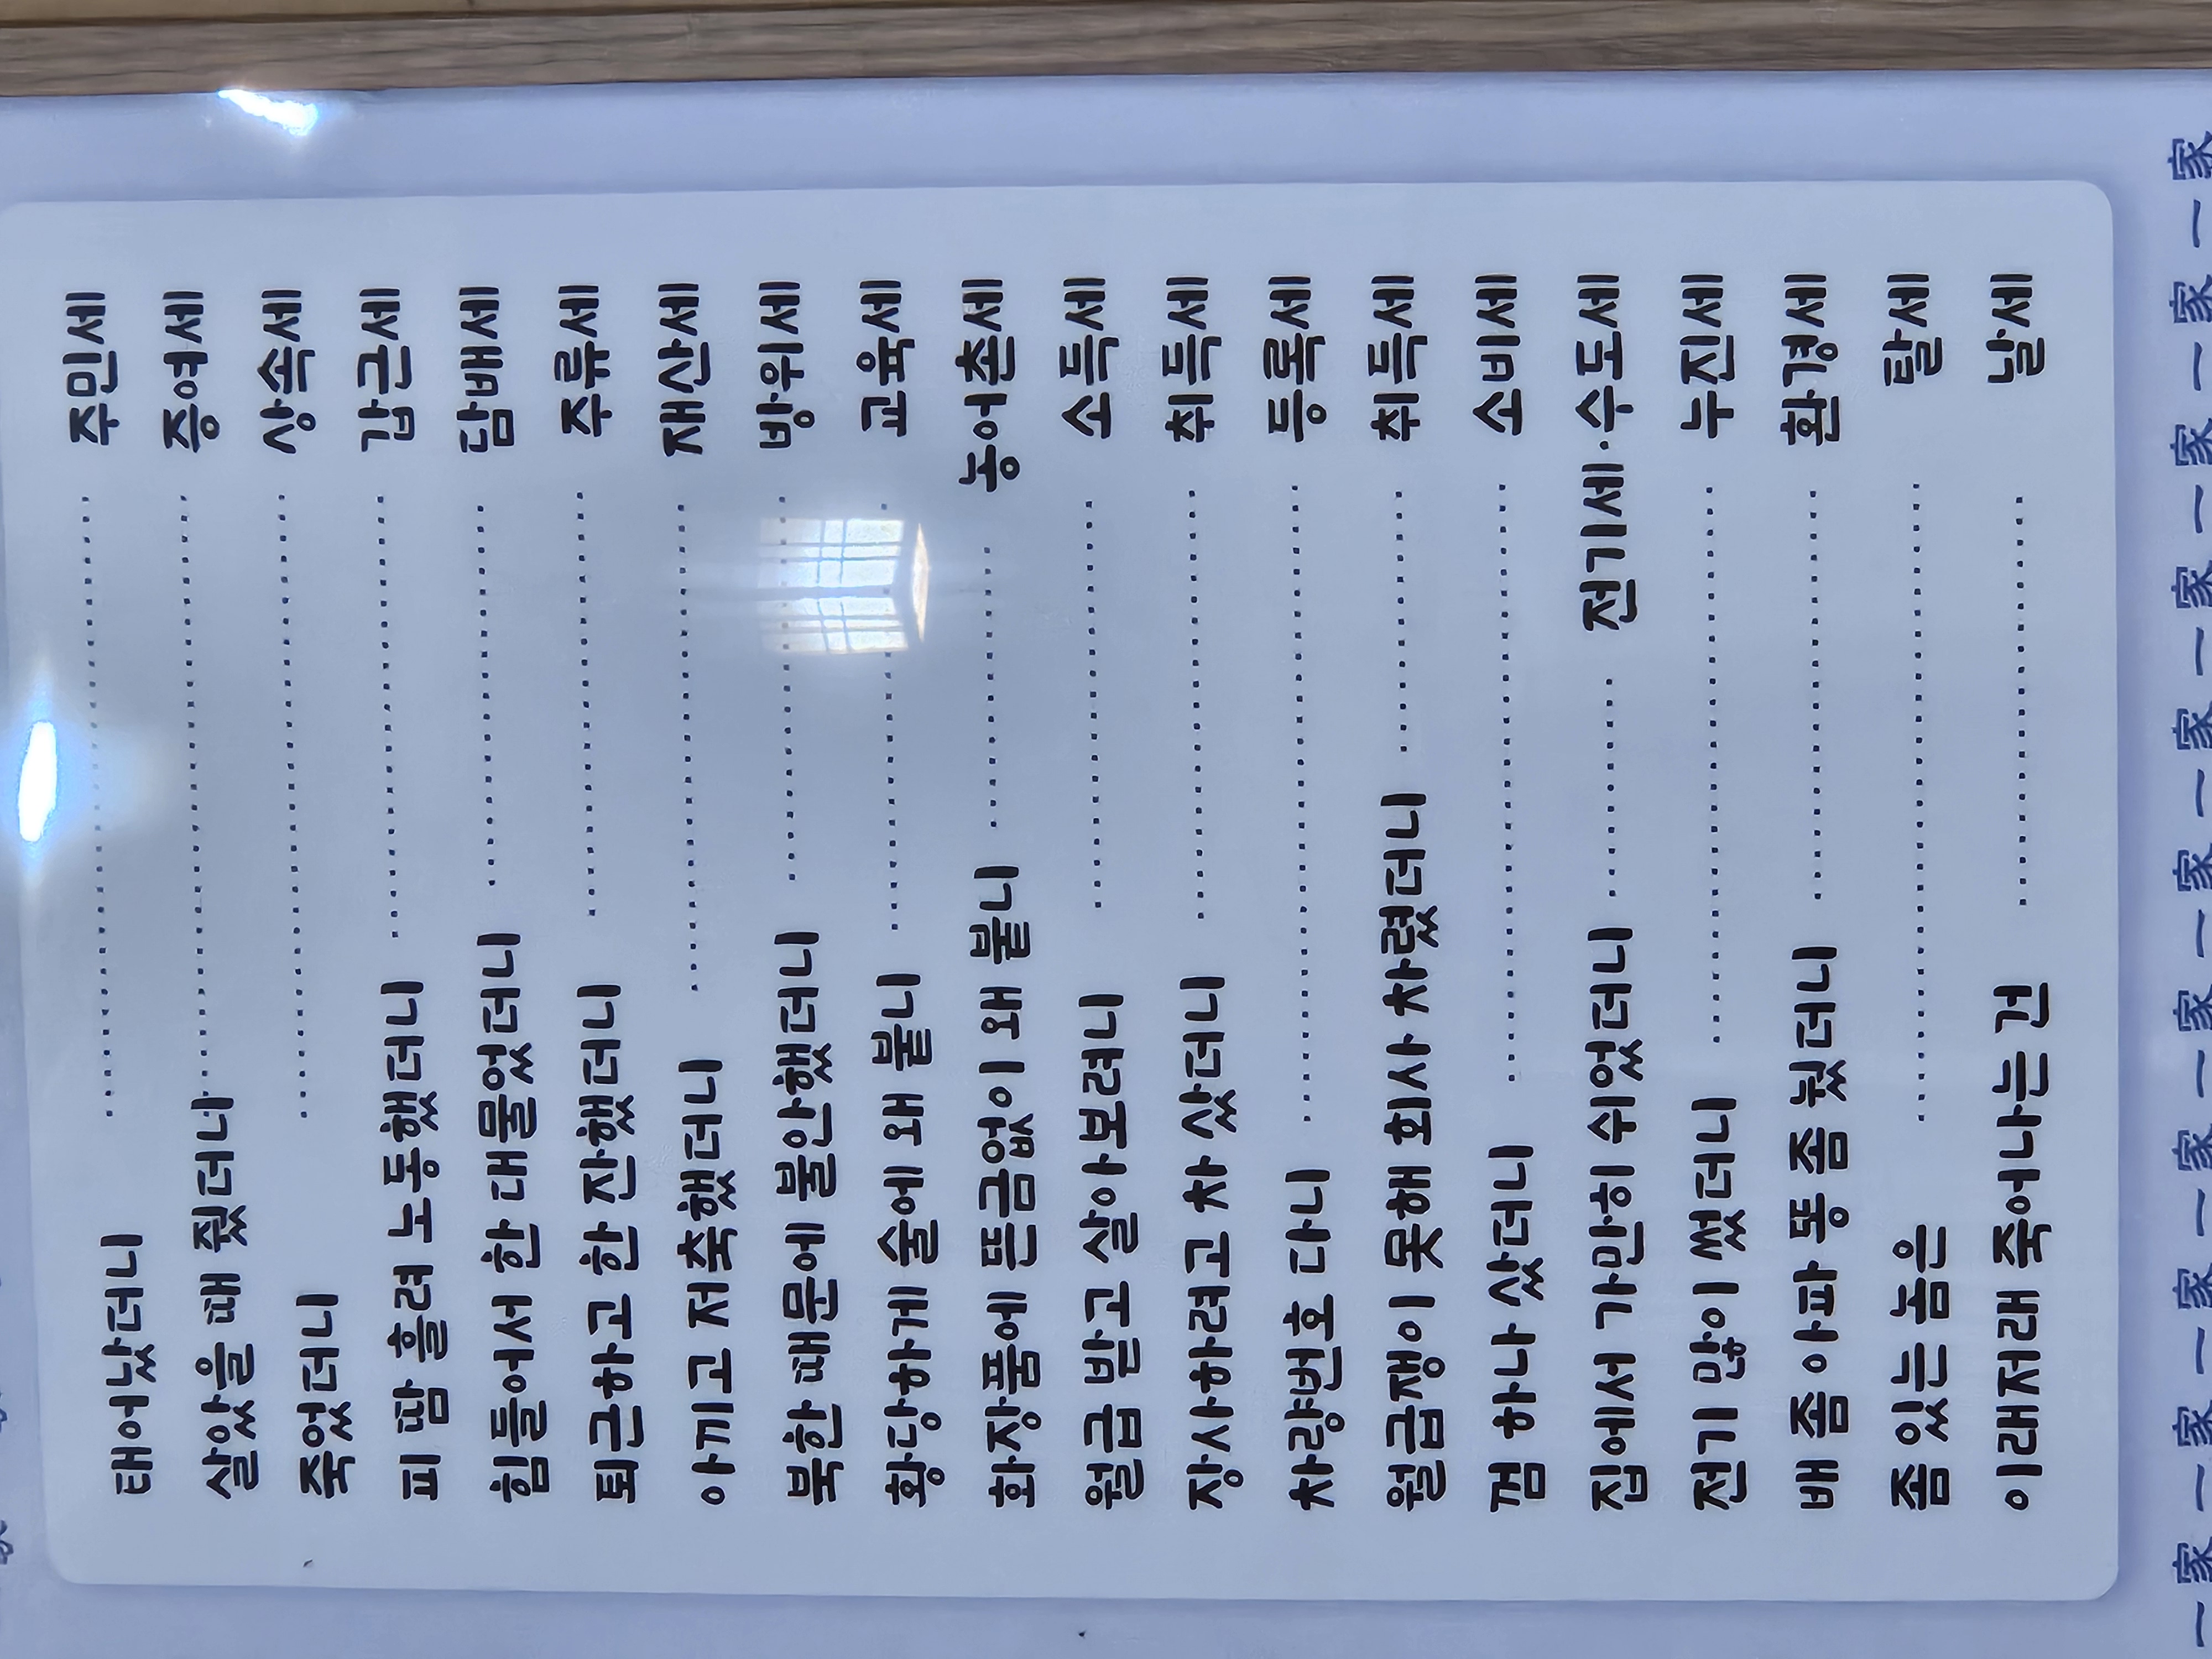 태어났더니 ························ 주민세
살았을 때 줬더니 ························ 증여세
죽었더니 ························ 상속세
피 땀 흘려 노동했더니 ························ 갑근세
힘들어서 한 대 물었더니 ························ 담배세
퇴근하고 한 잔했더니 ························ 주류세
아끼고 저축했더니 ························ 재산세
북한 때문에 불안했더니 ························ 방위세
황당하게 술에 왜 붙니 ························ 교육세
화장품에 뜬금없이 왜 붙니 ························ 농어촌세
월급 받고 살아보려니 ························ 소득세
장사하려고 차 샀더니 ························ 취득세
차량번호 다니 ························ 등록세
월급쟁이 못해 회사 차렸더니 ························ 취득세
껌 하나 샀더니 ························ 소비세
집에서 가만히 쉬었더니 ························ 전기세·수도세
전기 많이 썼더니 ························ 누진세
배 좀 아파 똥 좀 눴더니 ························ 환경세
좀 있는 놈은 ························ 탈세
이래저래 죽어나는 건 ························ 날세
一家一家一家一家一家一家一家一家一家一家一家